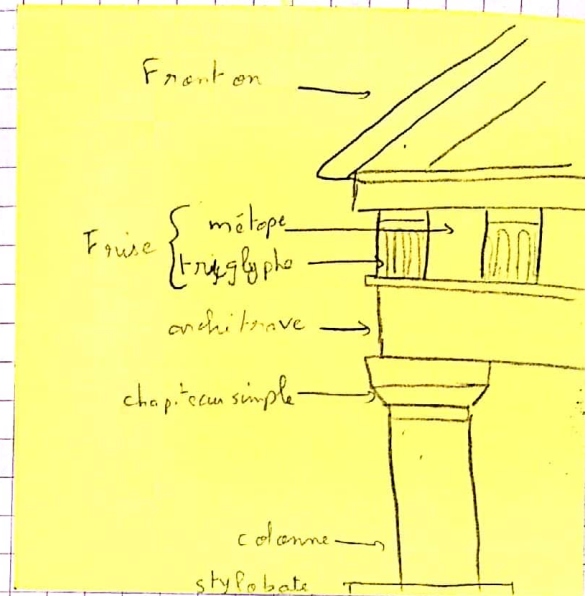 Fronton
Frise { métope
triglyphe
architrave
chapiteau simple
colonne
stylobate